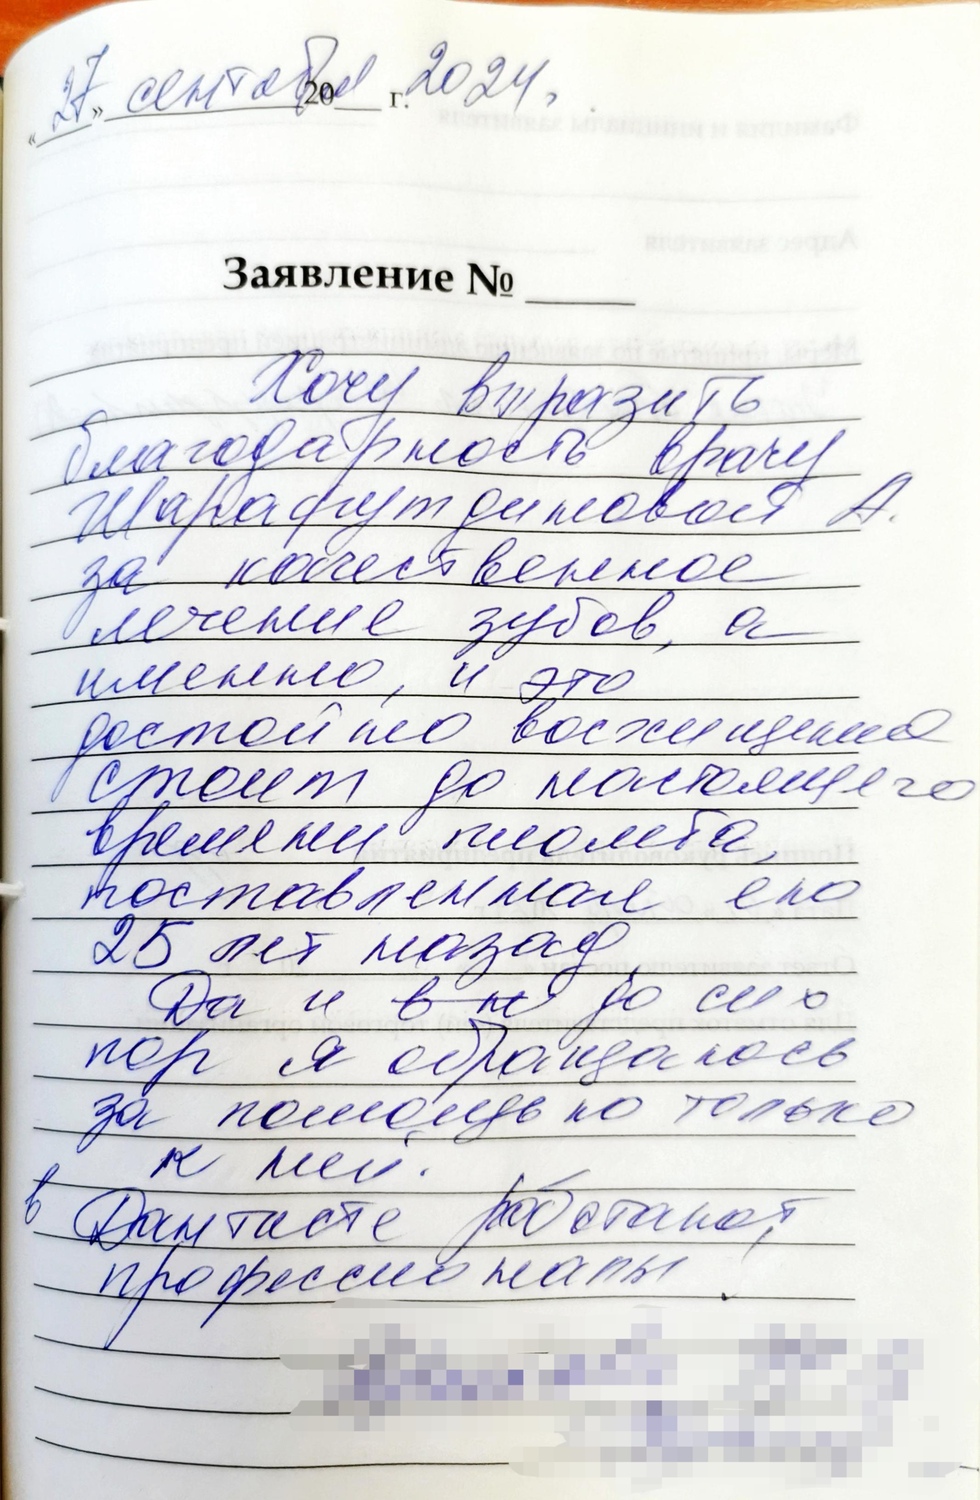 «27» сентября 20__ г. 2024.
Заявление № ____
Хочу выразить
благодарность врачу
Шарафутдиновой А.
за качественное
лечение зубов, а
именно, и это
достойно восхищения
стоит до настоящего
времени пломба,
поставленная ею
25 лет назад.
Да и до сих
пор я обращаюсь
за помощью только
к ней.
в Дантисте работают
профессионалы!